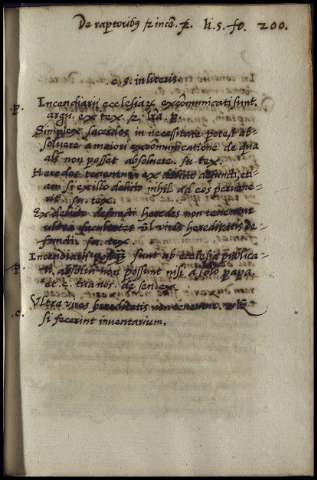 De raptoribus et incē. et. li. 5. fo. 200.
c. 5. in literis
p. Incendiarii ecclesiar excōmunicati sunt,
argu. ex tex. et
Simplex sacerdos in necessitate potest ab-
soluere a maiori excōmunicatione de qua
als non posset absoluere. su. tex.
Heredes tenentur ex delicto defuncti, eti-
am si ex illo delicto nihil ad eos peruene-
rit. su. tex.
Ex delicto defuncti heredes non tenentur
ultra vires hereditatis de-
functi. su. tex.
Incendiarii sunt ab ecclesia publica-
p. ti, absolui non possunt nisi a solo papa,
et c. tua nos. de sen. ex.
c. Vltra vires hereditatis non tenentur
si fecerint inuentarium.